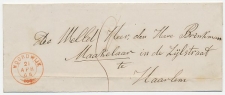 Des Welled Heer, den Heer Bronhuwer
Maakelaar in de Zijlstraat
te
Haarlem
21
APR